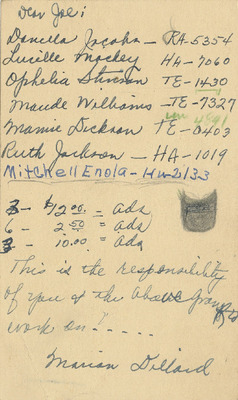 Dear Joe:
Donella Jacobs - RA-5354
Lucille Mockey - HA-7060
Ophelia Stinson - TE-1430
Maude Williams - TE-7327
Mamie Dickson TE-0403
Ruth Jackson - HA-1019
Mitchell Enola - HU-2133
3 - $12.00 = ads
6 - 2.50 = ads
3 - 10.00 = ads
This is the responsibility
of you & the above group
work on! - - - - .
Marian Dillard